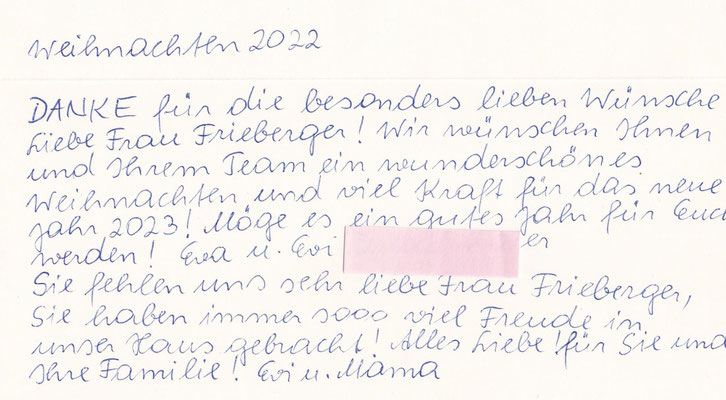 Weihnachten 2022
DANKE für die besonders lieben Wünsche
Liebe Frau Frieberger! Wir wünschen Ihnen
und Ihrem Team ein wunderschönes
Weihnachten und viel Kraft für das neue
Jahr 2023! Möge es ein gutes Jahr für Euch
werden! Eva u. Evi er
Sie fehlen uns sehr liebe Frau Frieberger,
Sie haben immer sooo viel Freude in
unser Haus gebracht! Alles Liebe! für Sie und
Ihre Familie! Evi u. Mama